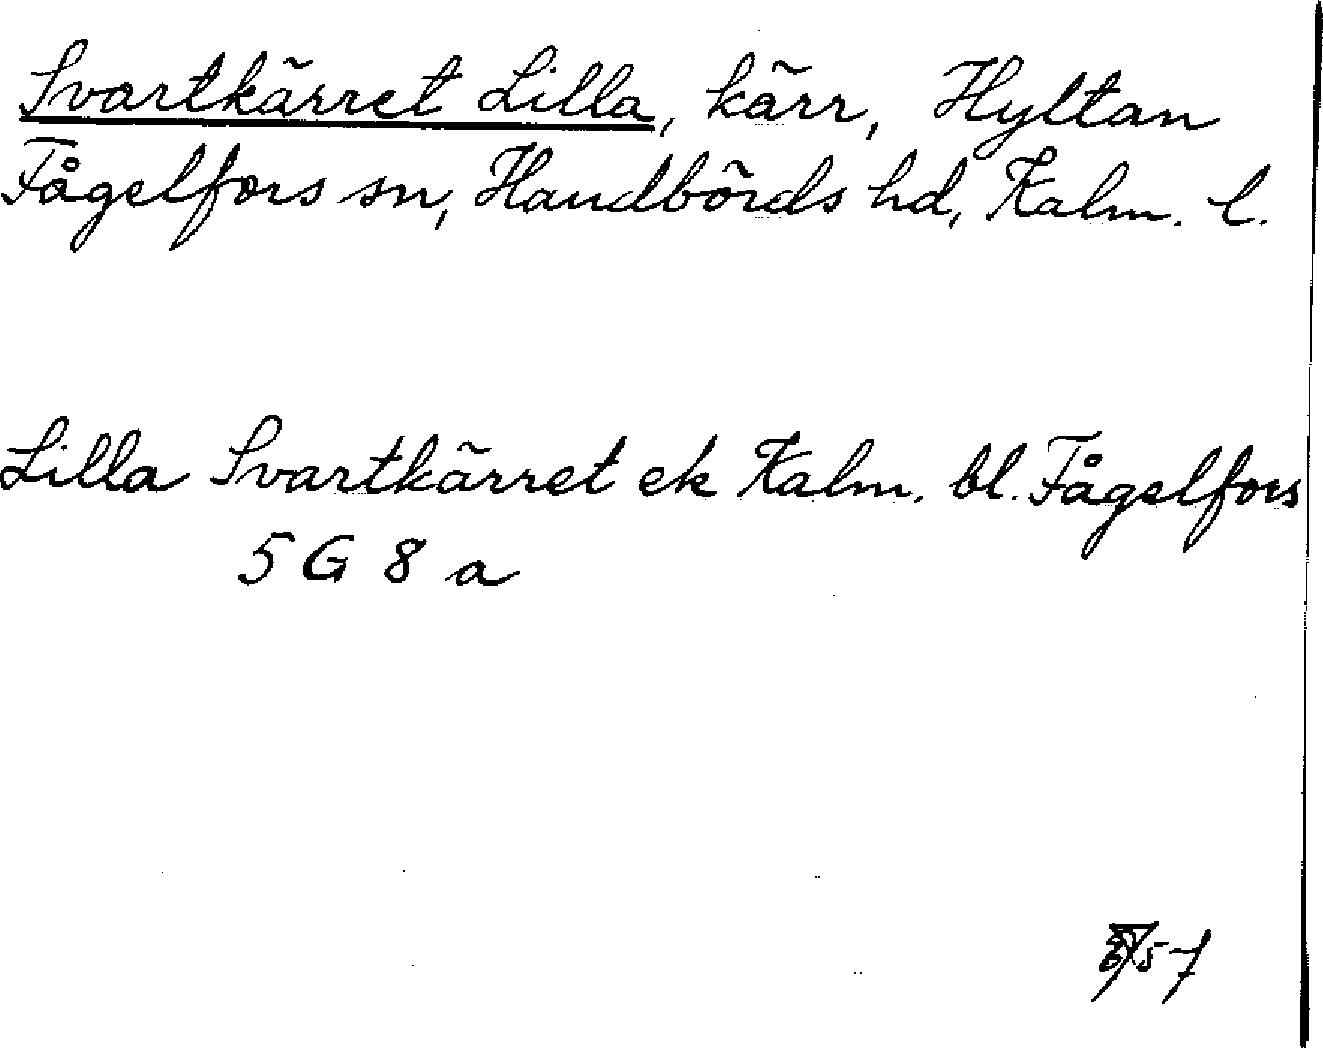 Svartkärret Lilla, kärr, Hyltan
Fågelfors sn, Handbörds hd, Kalm. l.
Lilla Svartkärret ek Kalm. bl. Fågelfors
5 G 8 a